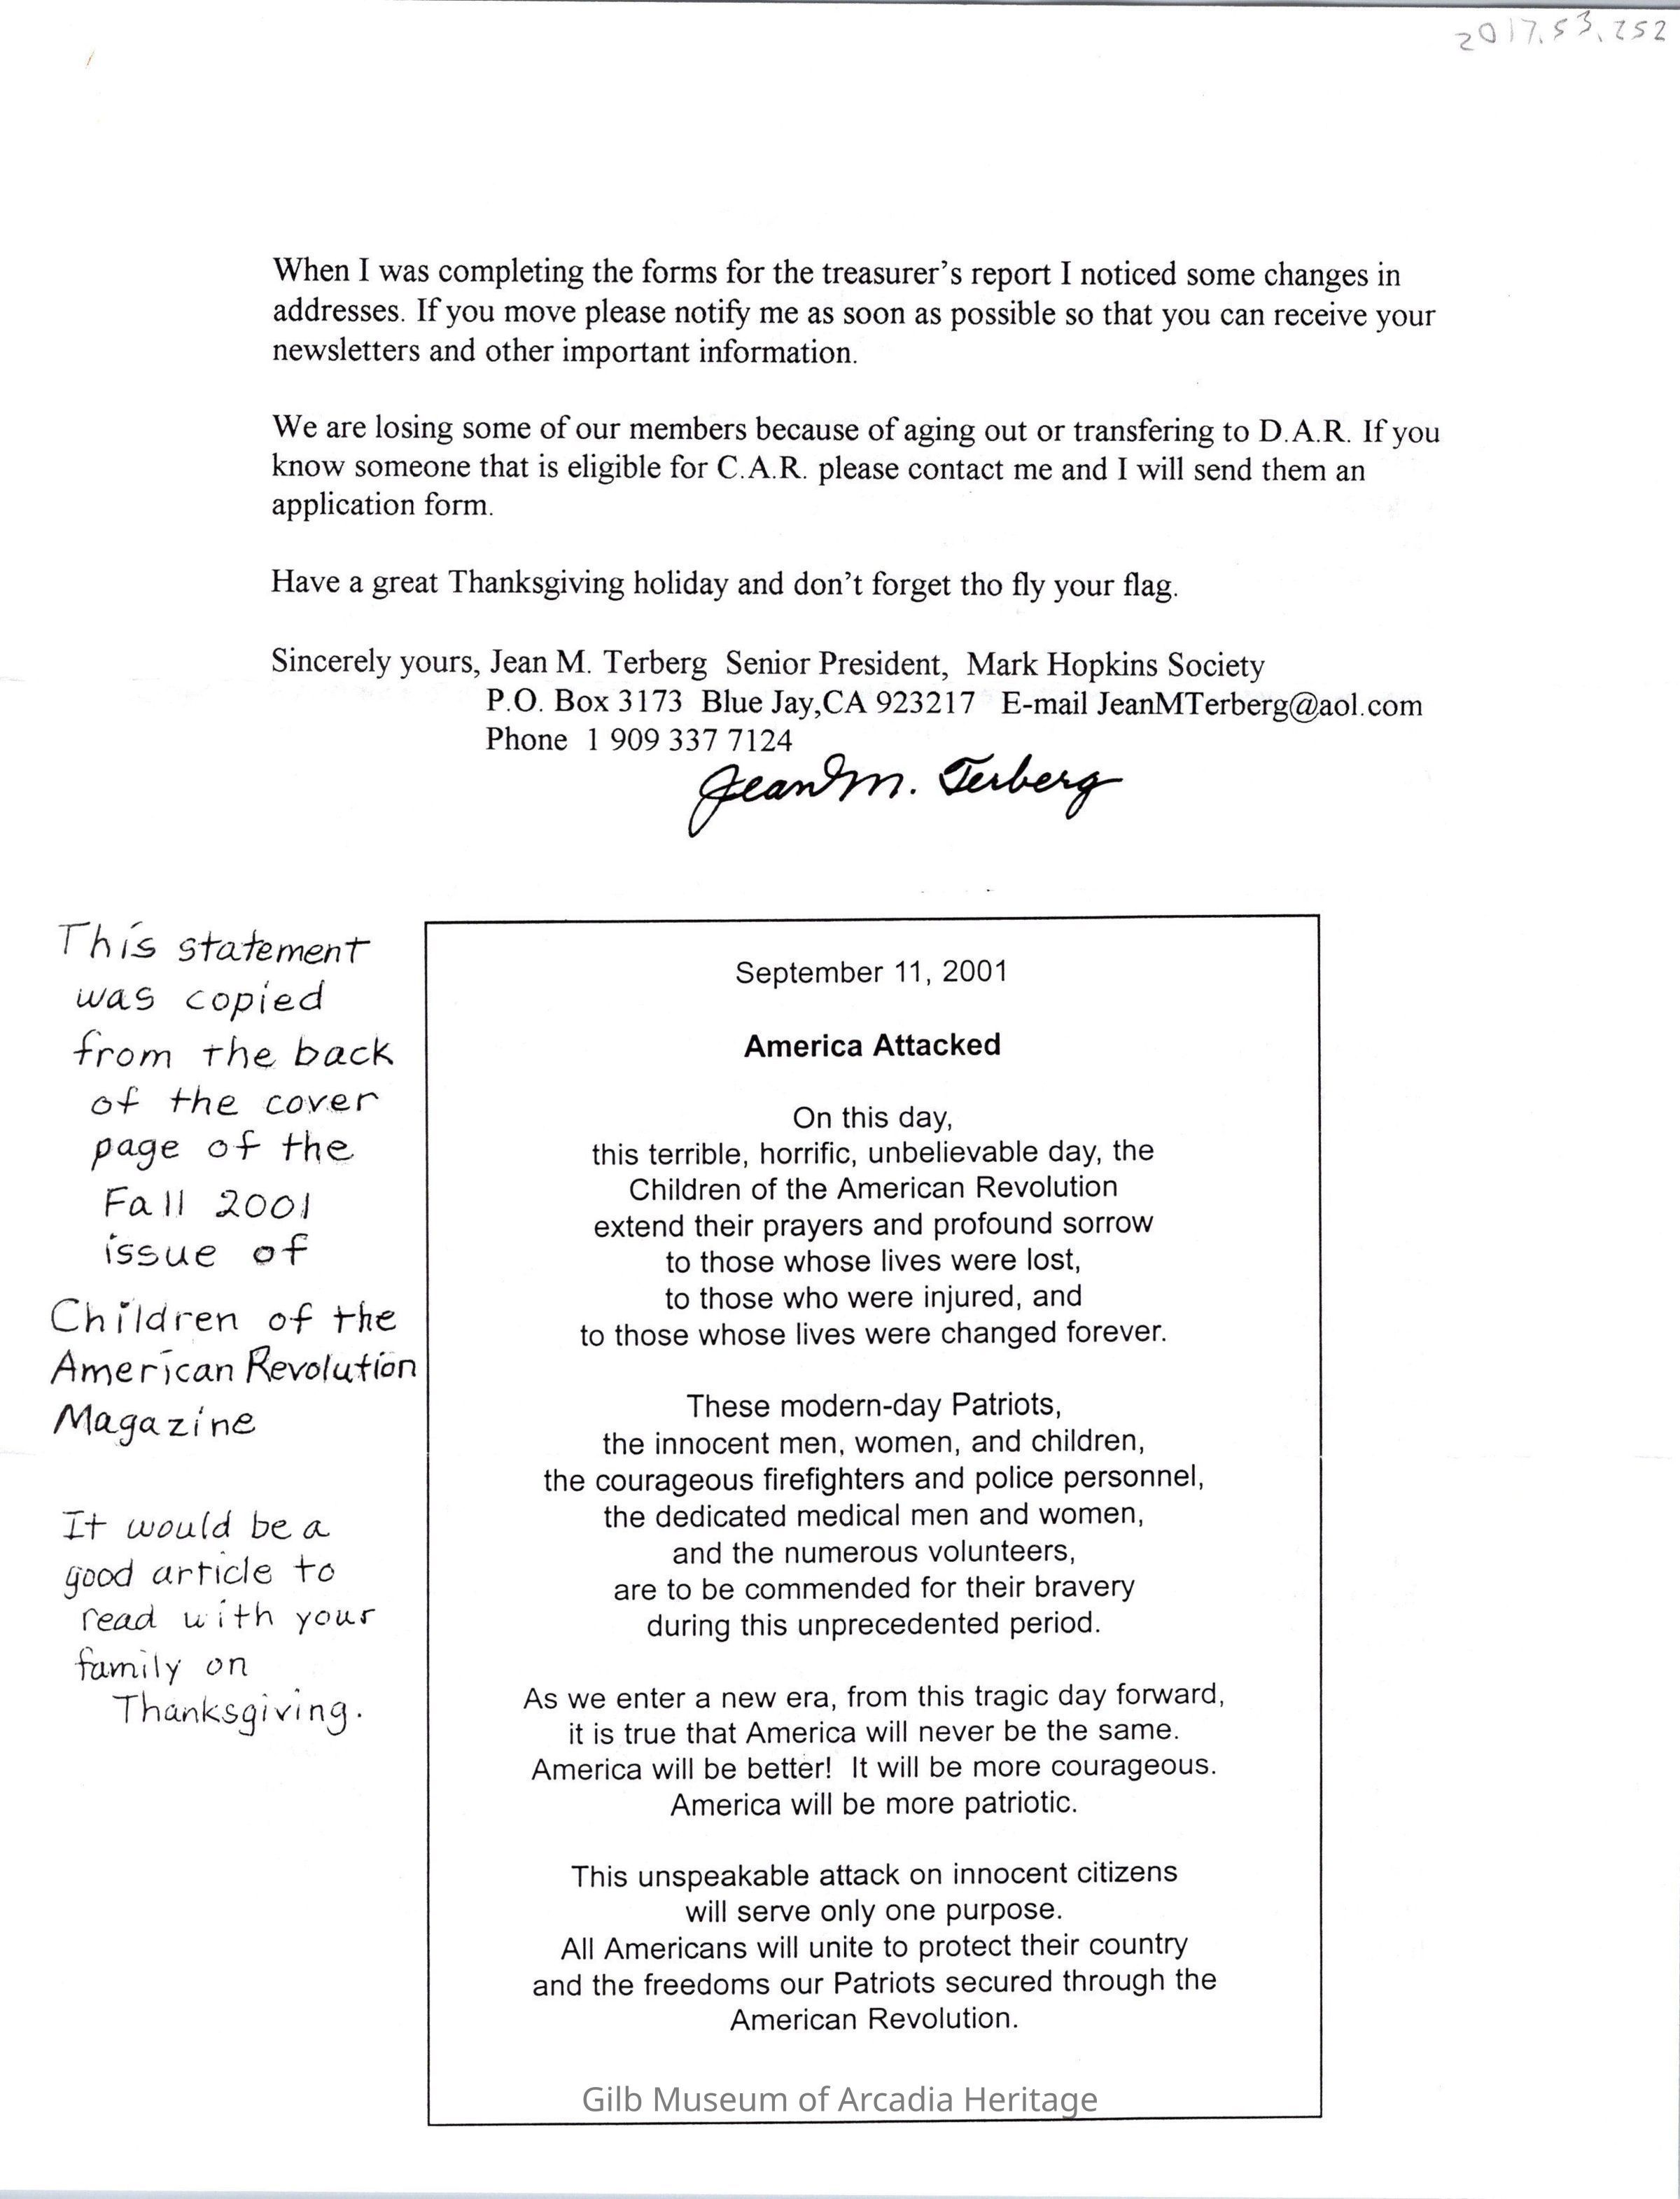 2017.53.252
When I was completing the forms for the treasurer's report I noticed some changes in
addresses. If you move please notify me as soon as possible so that you can receive your
newsletters and other important information.
We are losing some of our members because of aging out or transfering to D.A.R. If you
know someone that is eligible for C.A.R. please contact me and I will send them an
application form.
Have a great Thanksgiving holiday and don't forget tho fly your flag.
Sincerely yours, Jean M. Terberg Senior President, Mark Hopkins Society
P.O. Box 3173 Blue Jay,CA 923217 E-mail JeanMTerberg@aol.com
Phone 1 909 337 7124
Jean M. Terberg
This statement
was copied
from the back
of the cover
page of the
Fall 2001
issue of
Children of the
American Revolution
Magazine
It would be a
good article to
read with your
family on
Thanksgiving.
September 11, 2001
America Attacked
On this day,
this terrible, horrific, unbelievable day, the
Children of the American Revolution
extend their prayers and profound sorrow
to those whose lives were lost,
to those who were injured, and
to those whose lives were changed forever.
These modern-day Patriots,
the innocent men, women, and children,
the courageous firefighters and police personnel,
the dedicated medical men and women,
and the numerous volunteers,
are to be commended for their bravery
during this unprecedented period.
As we enter a new era, from this tragic day forward,
it is true that America will never be the same.
America will be better! It will be more courageous.
America will be more patriotic.
This unspeakable attack on innocent citizens
will serve only one purpose.
All Americans will unite to protect their country
and the freedoms our Patriots secured through the
American Revolution.
Gilb Museum of Arcadia Heritage